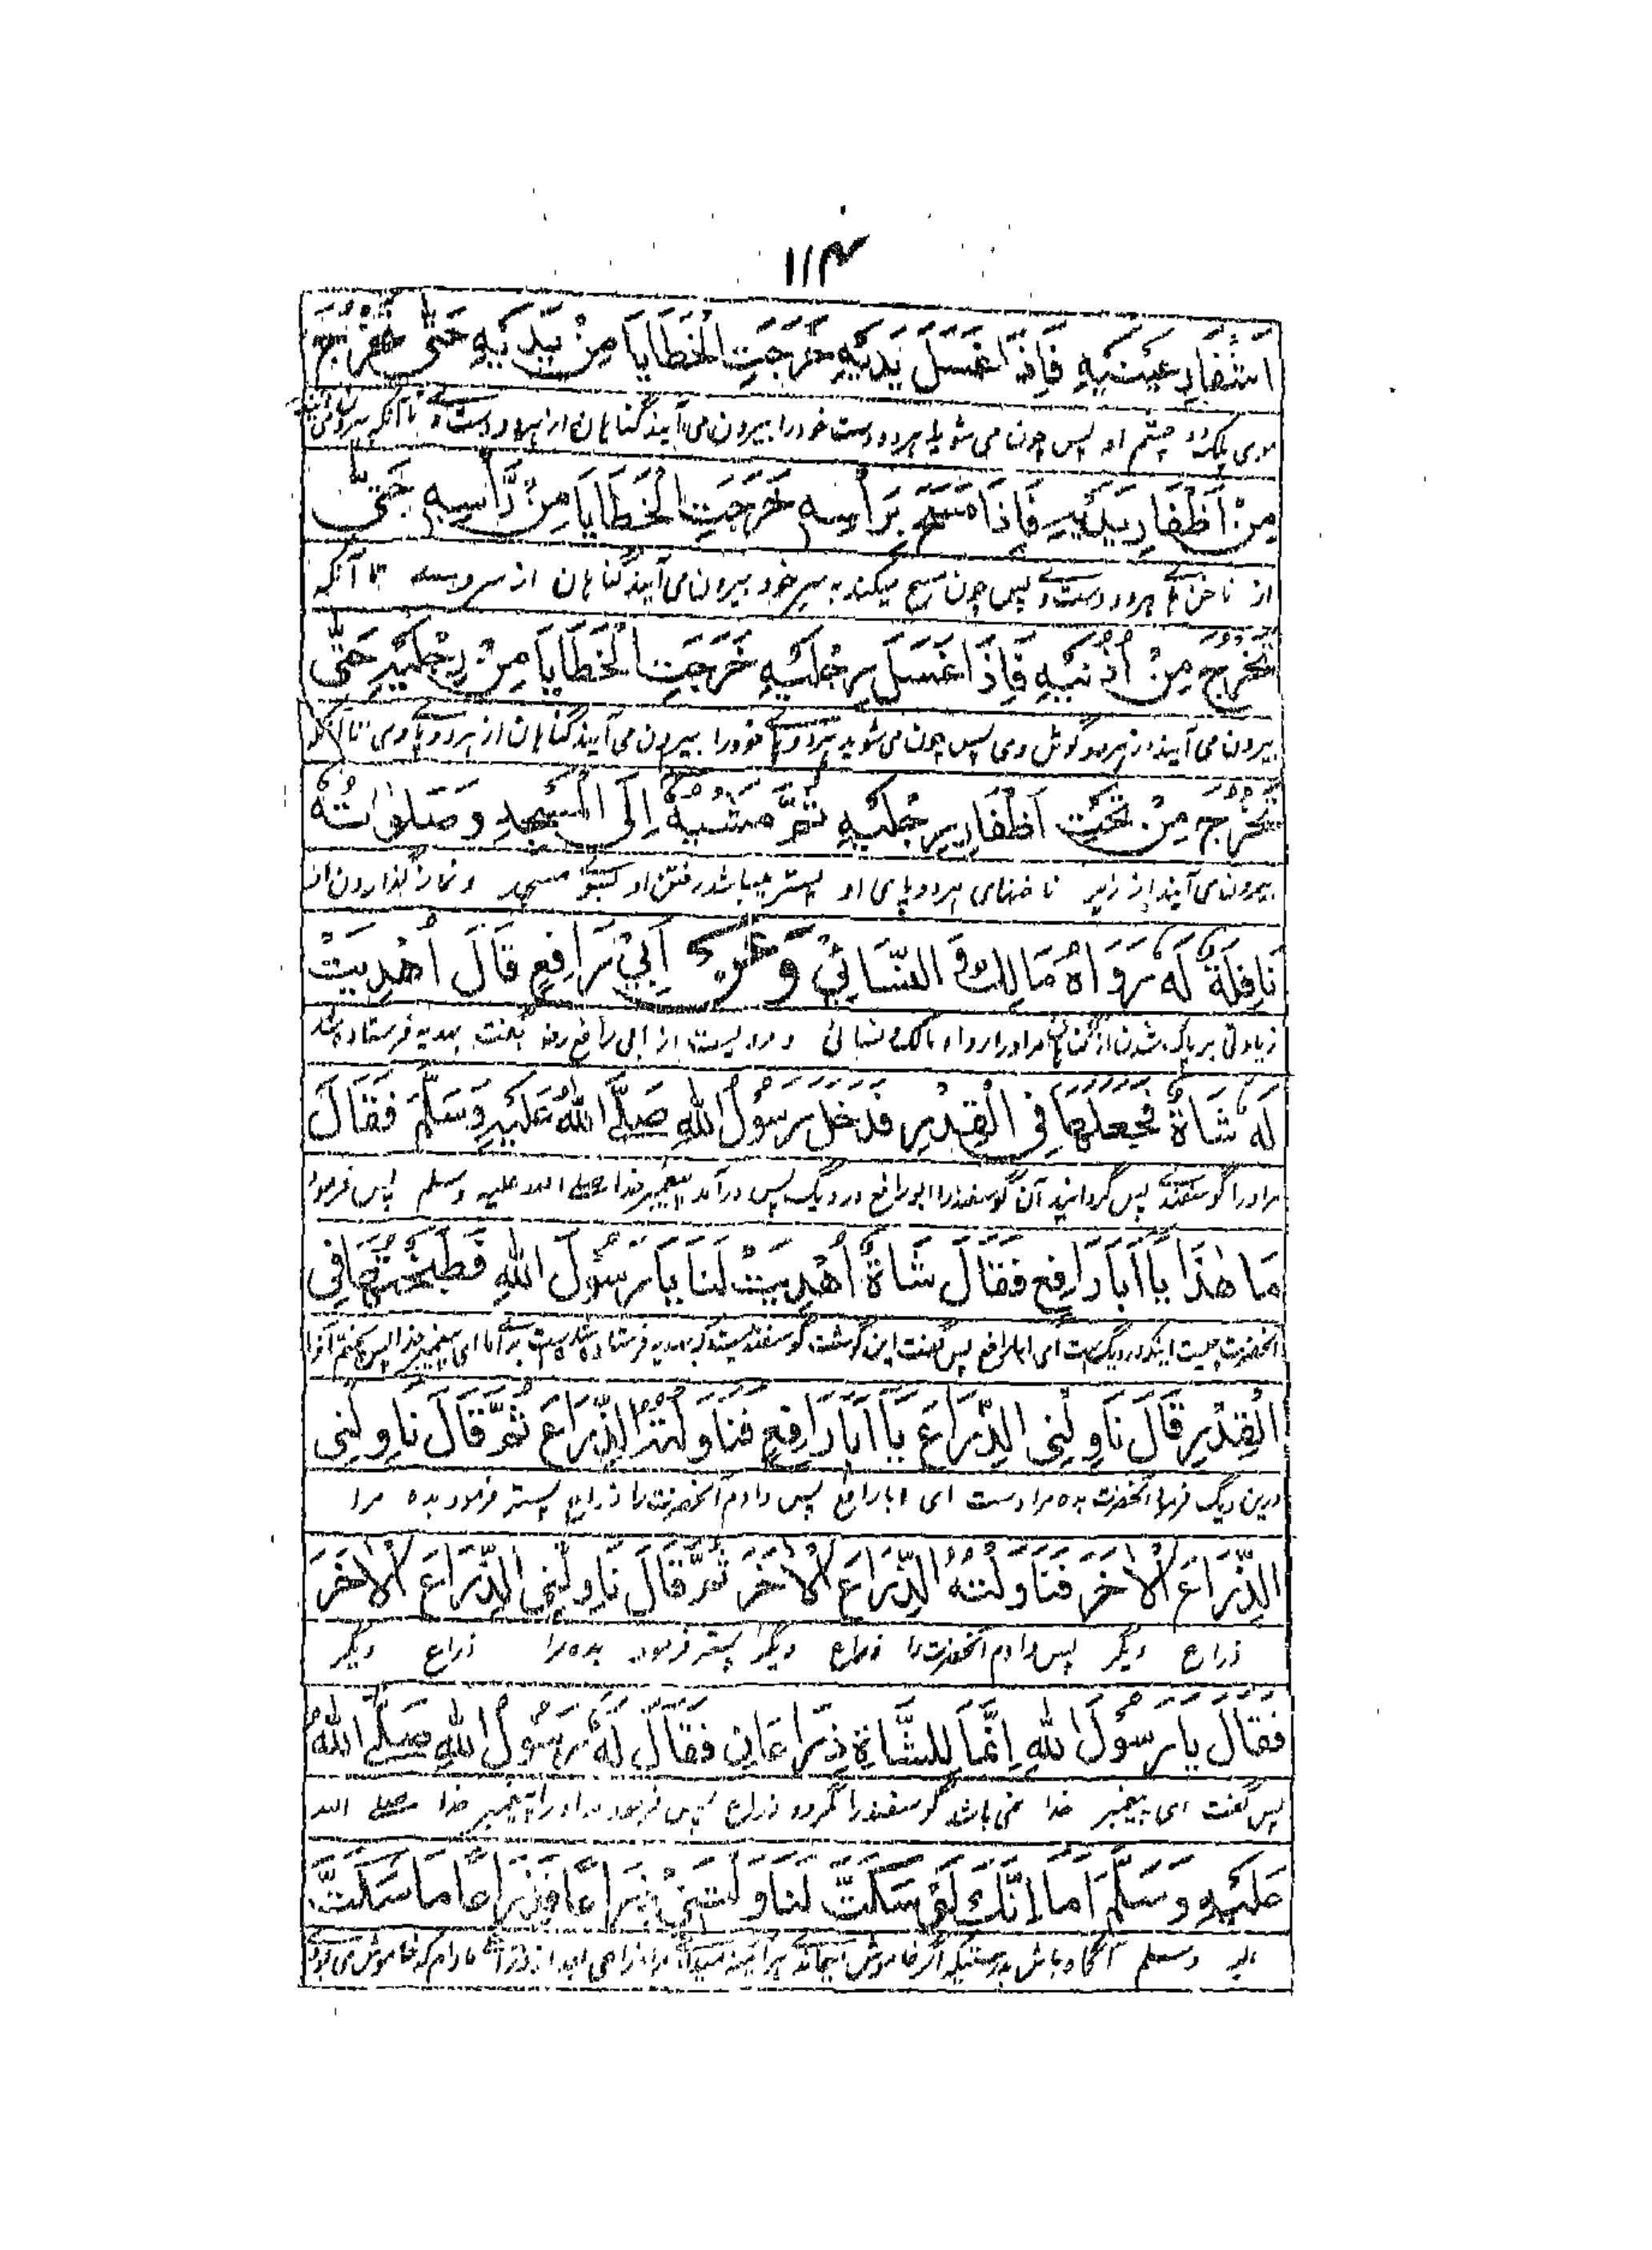 ۱۱۴
اَشْفَارِ عَيْنَيْهِ فَاِذَا غَسَلَ يَدَيْهِ خَرَجَتِ الْخَطَايَا مِنْ يَدَيْهِ حَتّٰى تَخْرُجَ
موی پلک دو چشم او پس چون می شوید هر دو دست خود را بیرون می آیند گناهان از هر دو دست وی تا آنکه بیرون می آیند
مِنْ اَظْفَارِ يَدَيْهِ فَاِذَا مَسَحَ بِرَاْسِهٖ خَرَجَتِ الْخَطَايَا مِنْ رَّاْسِهٖ حَتّٰى
از ناخن های هر دو دست وی پس چون مسح میکند به سر خود بیرون می آیند گناهان از سر وی تا آنکه
تَخْرُجَ مِنْ اُذُنَيْهِ فَاِذَا غَسَلَ رِجْلَيْهِ خَرَجَتِ الْخَطَايَا مِنْ رِجْلَيْهِ حَتّٰى
بیرون می آیند از هر دو گوش وی پس چون می شوید هر دو پای خود را بیرون می آیند گناهان از هر دو پای وی تا آنکه
تَخْرُجَ مِنْ تَحْتِ اَظْفَارِ رِجْلَيْهِ ثُمَّ مَشْيُهٗ اِلَى الْمَسْجِدِ وَصَلٰوتُهٗ
بیرون می آیند از زیر ناخنهای هر دو پای او پستر میباشد رفتن او بسوی مسجد و نماز گذاردن او
نَافِلَةً لَهٗ رَوَاهُ مَالِكٌ وَ النَّسَائِيْ وَعَنْ اَبِيْ رَافِعٍ قَالَ اُهْدِيَتْ
زیادتی بر پاک شدن از گناهان مر او را رواه مالک و نسائی و مرویست از ابی رافع رضـ گفت هدیه فرستاده شد
لَهٗ شَاةٌ فَجَعَلَهَا فِى الْقِدْرِ فَدَخَلَ رَسُوْلُ اللّٰهِ صَلَّے اللّٰهُ عَلَيْهِ وَسَلَّمَ فَقَالَ
مر او را گوسفندی پس گردانید آن گوسفند را ابو رافع در دیگ پس در آمد پیغمبر خدا صلے الله علیه وسلم پس فرمود
مَا هٰذَا يَا اَبَا رَافِعٍ فَقَالَ شَاةٌ اُهْدِيَتْ لَنَا يَا رَسُوْلَ اللّٰهِ فَطَبَخْتُهَا فِى
آنحضرت چیست اینکه در دیگ ست ای ابا رافع پس گفت این گوشت گوسفندیست که هدیه فرستاده شده است برای ما ای پیغمبر خدا پس پختم آنرا
الْقِدْرِ قَالَ نَاوِلْنِى الذِّرَاعَ يَا اَبَا رَافِعٍ فَنَاوَلْتُهُ الذِّرَاعَ ثُمَّ قَالَ نَاوِلْنِى
درین دیگ فرمود آنحضرت بده مرا دست ای ابا رافع پس دادم آنحضرت را ذراع پستر فرمود بده مرا
الذِّرَاعَ الْاٰخَرَ فَنَاوَلْتُهُ الذِّرَاعَ الْاٰخَرَ ثُمَّ قَالَ نَاوِلْنِى الذِّرَاعَ الْاٰخَرَ
ذراع دیگر پس دادم آنحضرت را ذراع دیگر پستر فرمود بده مرا ذراع دیگر
فَقَالَ يَا رَسُوْلَ اللّٰهِ اِنَّمَا لِلشَّاةِ ذِرَاعَانِ فَقَالَ لَهٗ رَسُوْلُ اللّٰهِ صَلَّے اللّٰهُ
پس گفت ای پیغمبر خدا نمی باشد گوسفند را مگر دو ذراع پس فرمود مر او را پیغمبر خدا صلے الله
عَلَيْهِ وَسَلَّمَ اَمَا اِنَّكَ لَوْ سَكَتَّ لَنَاوَلْتَنِىْ ذِرَاعًا فَذِرَاعًا مَا سَكَتَّ
علیه وسلم آگاه باش بدرستیکه اگر خاموش میماندی هر آینه میدادی مرا ذراعی بعد از ذراعی مادام که خاموش می بودی